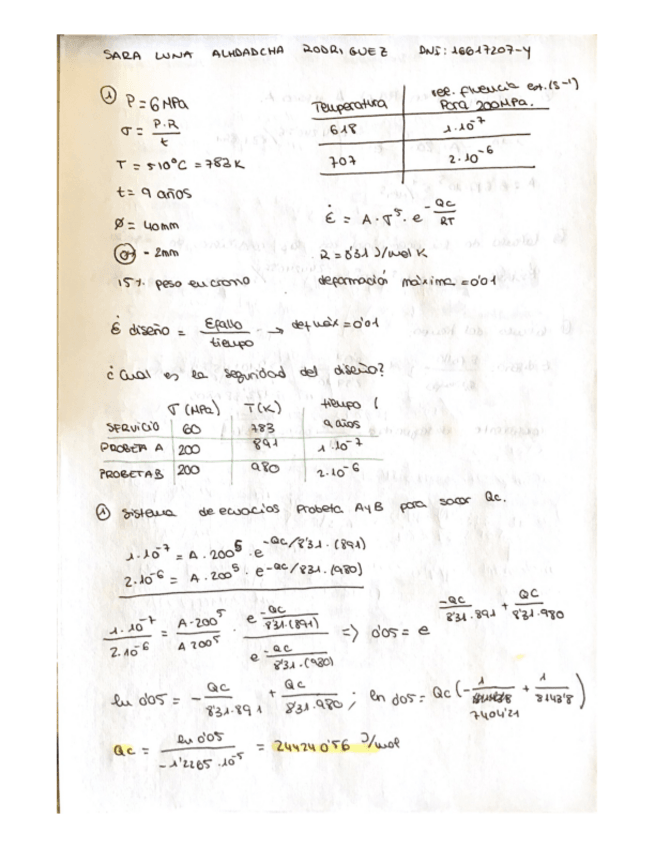 SARA LUNA ALHDADCHA RODRIGUEZ DNI: 16617207-Y
① P = 6 MPa
σ = P.R / t
T = 510°C = 783 K
t = 9 años
ø = 40mm
- 2mm
15% peso en cromo
Temperatura | vel. fluencia est. (s-1) Para 200MPa.
618 | 1.10^-7
707 | 2.10^-6
ε̇ = A · σ^5 · e^(-Qc/RT)
R = 8'31 J/mol K
deformación máxima = 0'01
ε̇ diseño = Efallo / tiempo → def máx = 0'01
¿Cual es la seguridad del diseño?
σ (MPa) T (K) tiempo (
SERVICIO 60 783 9 años
PROBETA A 200 891 1·10^-7
PROBETA B 200 980 2·10^-6
① Sistema de ecuacios Probeta A y B para sacar Qc.
1·10^-7 = A · 200^5 · e^(-Qc/8'31 · (891))
2·10^-6 = A · 200^5 · e^(-Qc/8'31 · (980))
1·10^-7 / 2·10^-6 = A·200^5 / A 200^5 · e^(-Qc / 8'31·(891)) / e^(-Qc / 8'31·(980)) => 0'05 = e^(-Qc / 8'31·891 + Qc / 8'31·980)
ln 0'05 = - Qc / 8'31·891 + Qc / 8'31·980 ; ln 0'05 = Qc (- 1 / 7404'21 + 1 / 8143'8)
Qc = ln 0'05 / -1'2265·10^-5 = 244240'56 J/mol